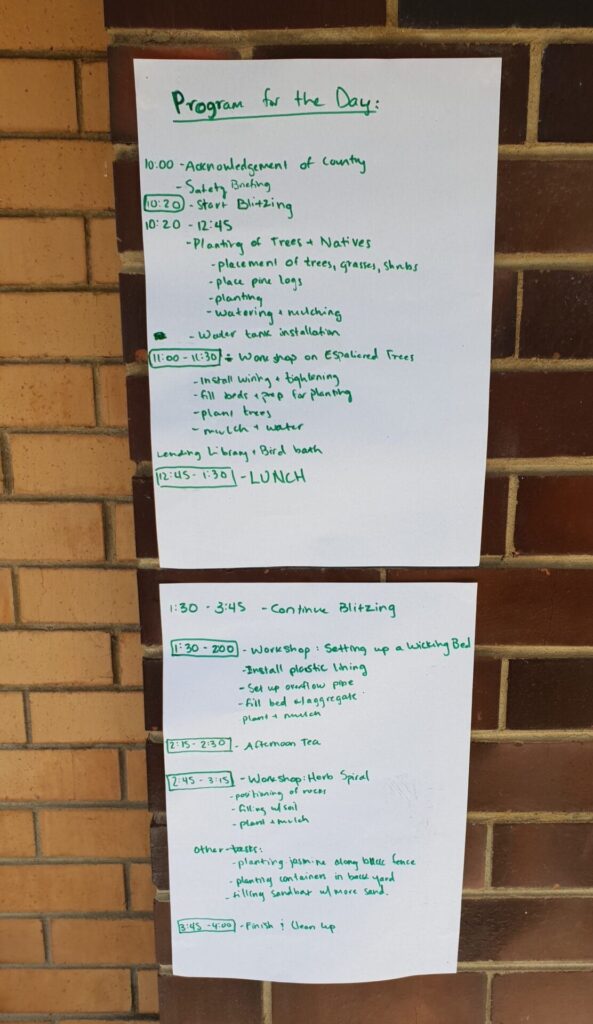 Program for the Day:
10:00 - Acknowledgement of Country
- Safety Briefing
10:20 - Start Blitzing
10:20 - 12:45
- Planting of Trees + Natives
- placement of trees, grasses, shrubs
- place pine logs
- planting
- watering + mulching
- Water tank installation
11:00 - 11:30 - Workshop on Espaliered Trees
- Install wiring + tightening
- fill beds + prep for planting
- plant trees
- mulch + water
Lending Library + Bird bath
12:45 - 1:30 - LUNCH
1:30 - 3:45 - Continue Blitzing
1:30 - 200 - Workshop: Setting up a Wicking Bed
- Install plastic lining
- Set up overflow pipe
- fill bed w/aggregate
plant + mulch
2:15 - 2:30 - Afternoon Tea
2:45 - 3:15 - Workshop: Herb Spiral
- positioning of rocks
- filling w/soil
- plant + mulch
Other tasks:
- planting jasmine along back fence
- planting containers in back yard
- filling sandbar w/ more sand.
3:45 - 4:00 - Finish & Clean Up